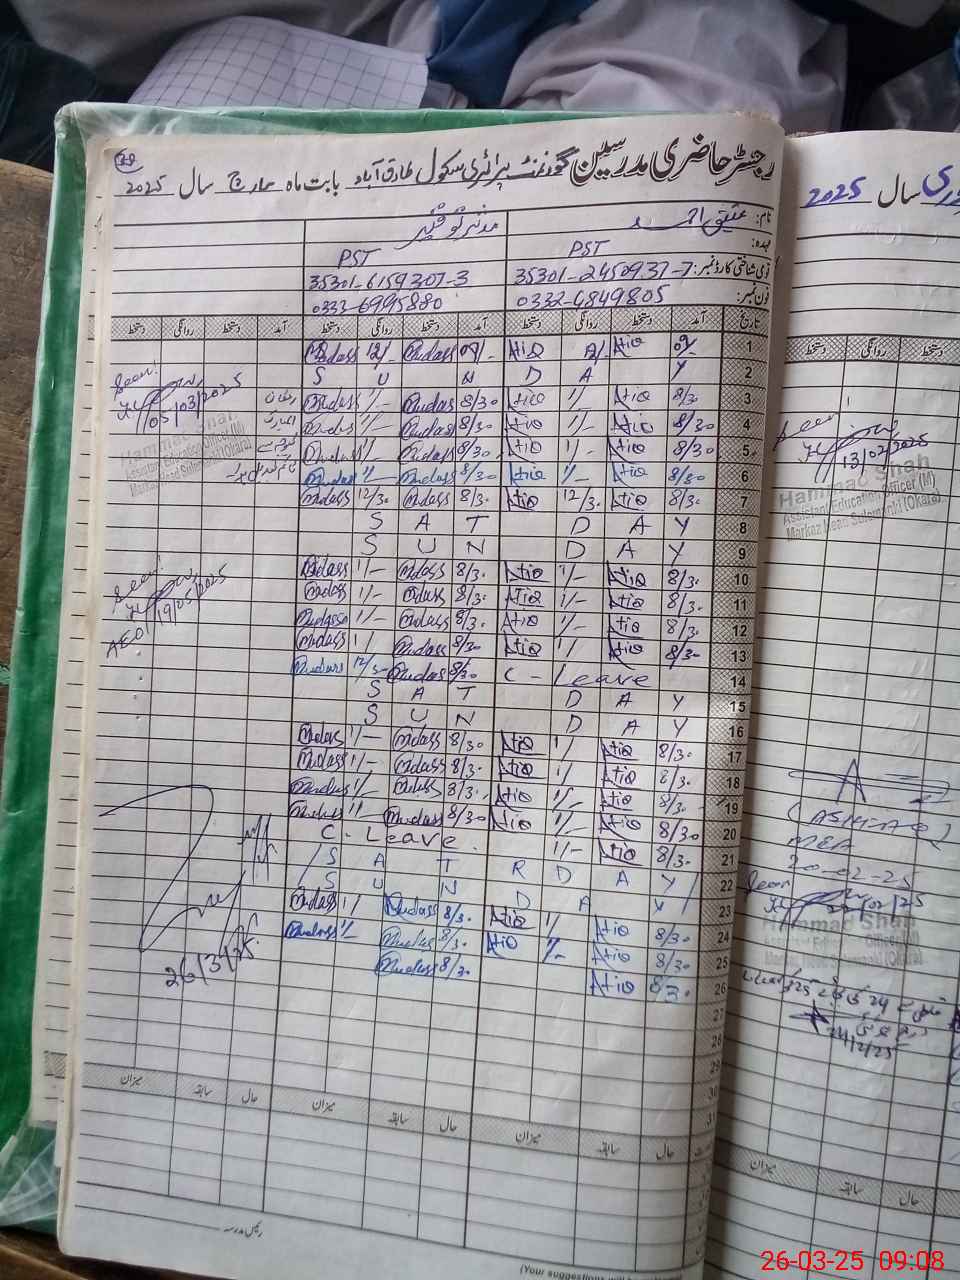 رجسٹر حاضری مدرسین گورنمنٹ پرائمری سکول طارق آباد بابت ماہ مارچ سال 2025
نام: عتیق احمد مدثر توقیر
عہدہ: PST PST
قومی شناختی کارڈ نمبر: 35301-2450937-7 35301-6159307-3
فون نمبر: 0332-4849805 0333-6995880
تاریخ آمد دستخط روانگی دستخط آمد دستخط روانگی دستخط آمد دستخط روانگی دستخط
1 09/- Atiq Atiq 09/- Mudass 12/- Mudass
2 S U N D A Y
3 8/30 Atiq 1/- Atiq 8/30 Mudass 1/- Mudass
4 8/30 Atiq 1/- Atiq 8/30 Mudass 1/- Mudass
5 8/30 Atiq 1/- Atiq 8/30 Mudass 1/- Mudass
6 8/30 Atiq 1/- Atiq 8/30 Mudass 1/- Mudass
7 8/30 Atiq 12/30 Atiq 8/30 Mudass 12/30 Mudass
8 S A T D A Y
9 S U N D A Y
10 8/30 Atiq 1/- Atiq 8/30 Mudass 1/- Mudass
11 8/30 Atiq 1/- Atiq 8/30 Mudass 1/- Mudass
12 8/30 Atiq 1/- Atiq 8/30 Mudass 1/- Mudass
13 8/30 Atiq 1/- Atiq 8/30 Mudass 1/ Mudass
14 C - Leave 8/30 Mudass 12/30 Mudass
15 S A T D A Y
16 S U N D A Y
17 8/30 Atiq 1/ Atiq 8/30 Mudass 1/- Mudass
18 8/30 Atiq 1/ Atiq 8/30 Mudass 1/- Mudass
19 8/30 Atiq 1/- Atiq 8/30 Mudass 1/- Mudass
20 8/30 Atiq 1/- Atiq 8/30 Mudass 1/ Mudass
21 8/30 Atiq 1/- C - Leave
22 S A T R D A Y
23 S U N D A Y
24 8/30 Atiq 1/ Atiq 8/30 Mudass 1/ Mudass
25 8/30 Atiq 1/- Atiq 8/30 Mudass 1/- Mudass
26 8/30 Atiq 8/30 Mudass
27
28
29
30
31
Seen
05/03/2025
Hammad Shah
Assistant Education Officer (M)
Markaz Head Sulemanki (Okara)
Seen
AEO 19/05/2025
26/3/25
حال سابقہ میزان حال سابقہ میزان حال سابقہ میزان
رئیس مدرسہ
سال 2025
دستخط روانگی دستخط
Seen
13/02/2025
Hammad Shah
Assistant Education Officer (M)
Markaz Head Sulemanki (Okara)
(ASHFAQ)
MEA
20-02-25
Seen
Hammad Shah
Assistant Education Officer (M)
Markaz Head Sulemanki (Okara)
24/2/25
حال سابقہ میزان
(Your suggestions will be
26-03-25 09:08